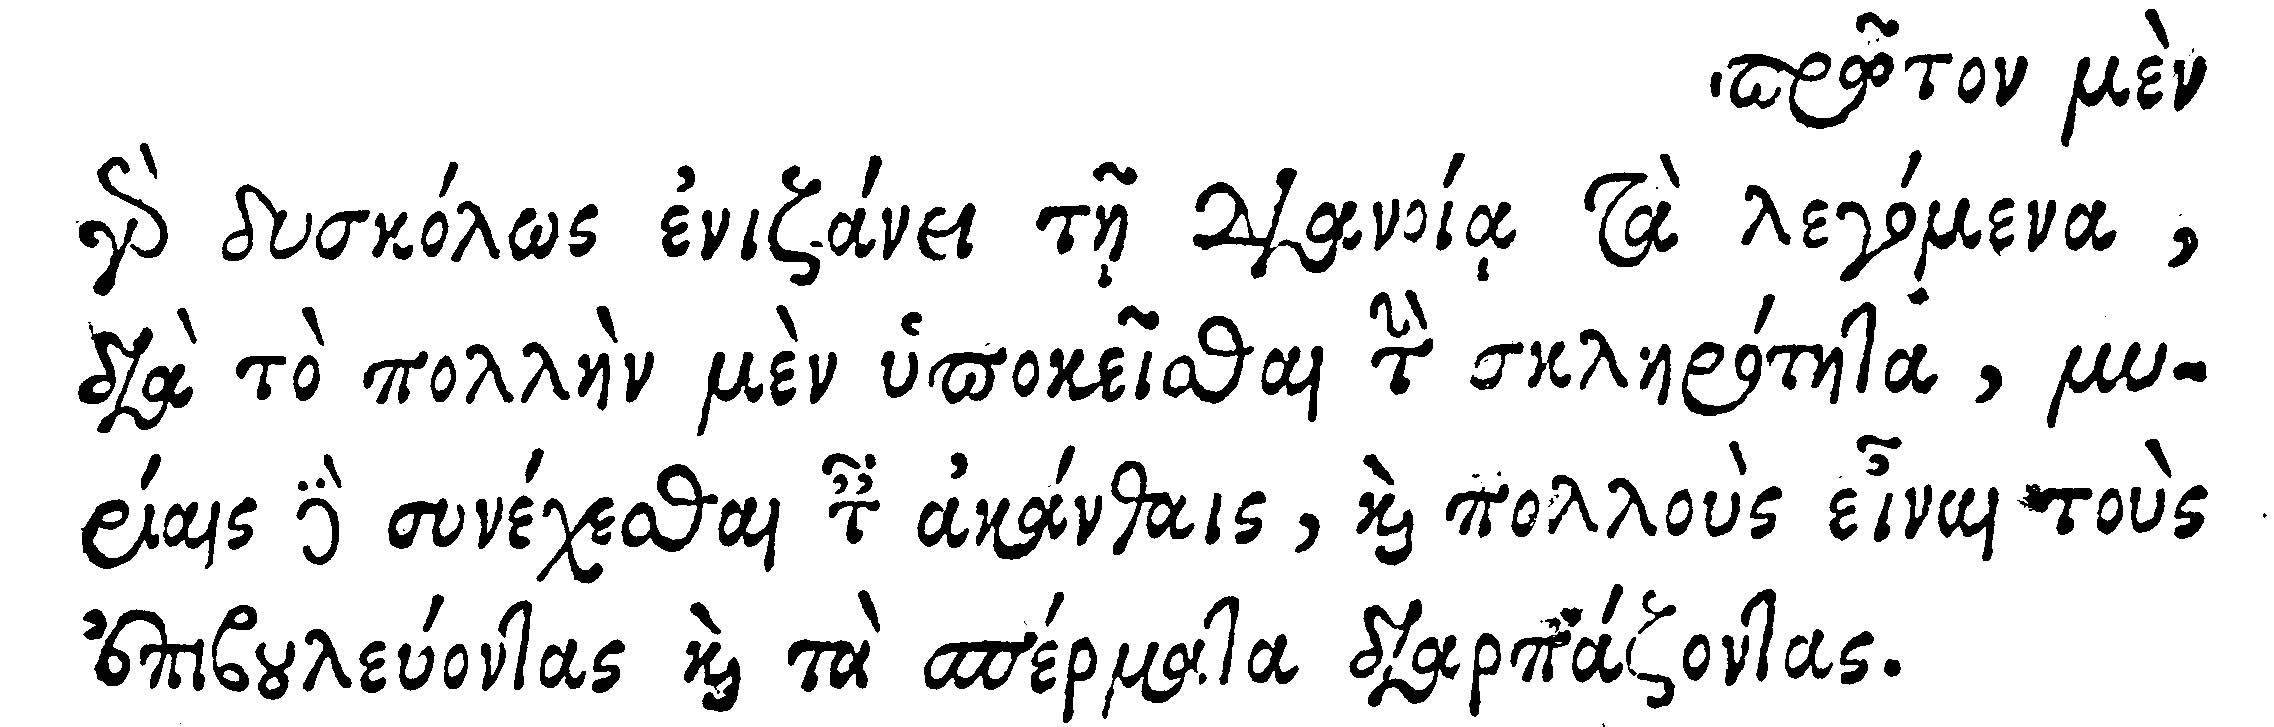 πρῶτον μὲν
γὰρ δυσκόλως ἐνιζάνει τῇ διανοίᾳ τὰ λεγόμενα,
διὰ τὸ πολλὴν μὲν ὑποκεῖσθαι τὴν σκληρότητα, μυ-
ρίαις δὲ συνέχεσθαι ταῖς ἀκάνθαις, καὶ πολλοὺς εἶναι τοὺς
ἐπιβουλεύοντας καὶ τὰ σπέρματα διαρπάζοντας.